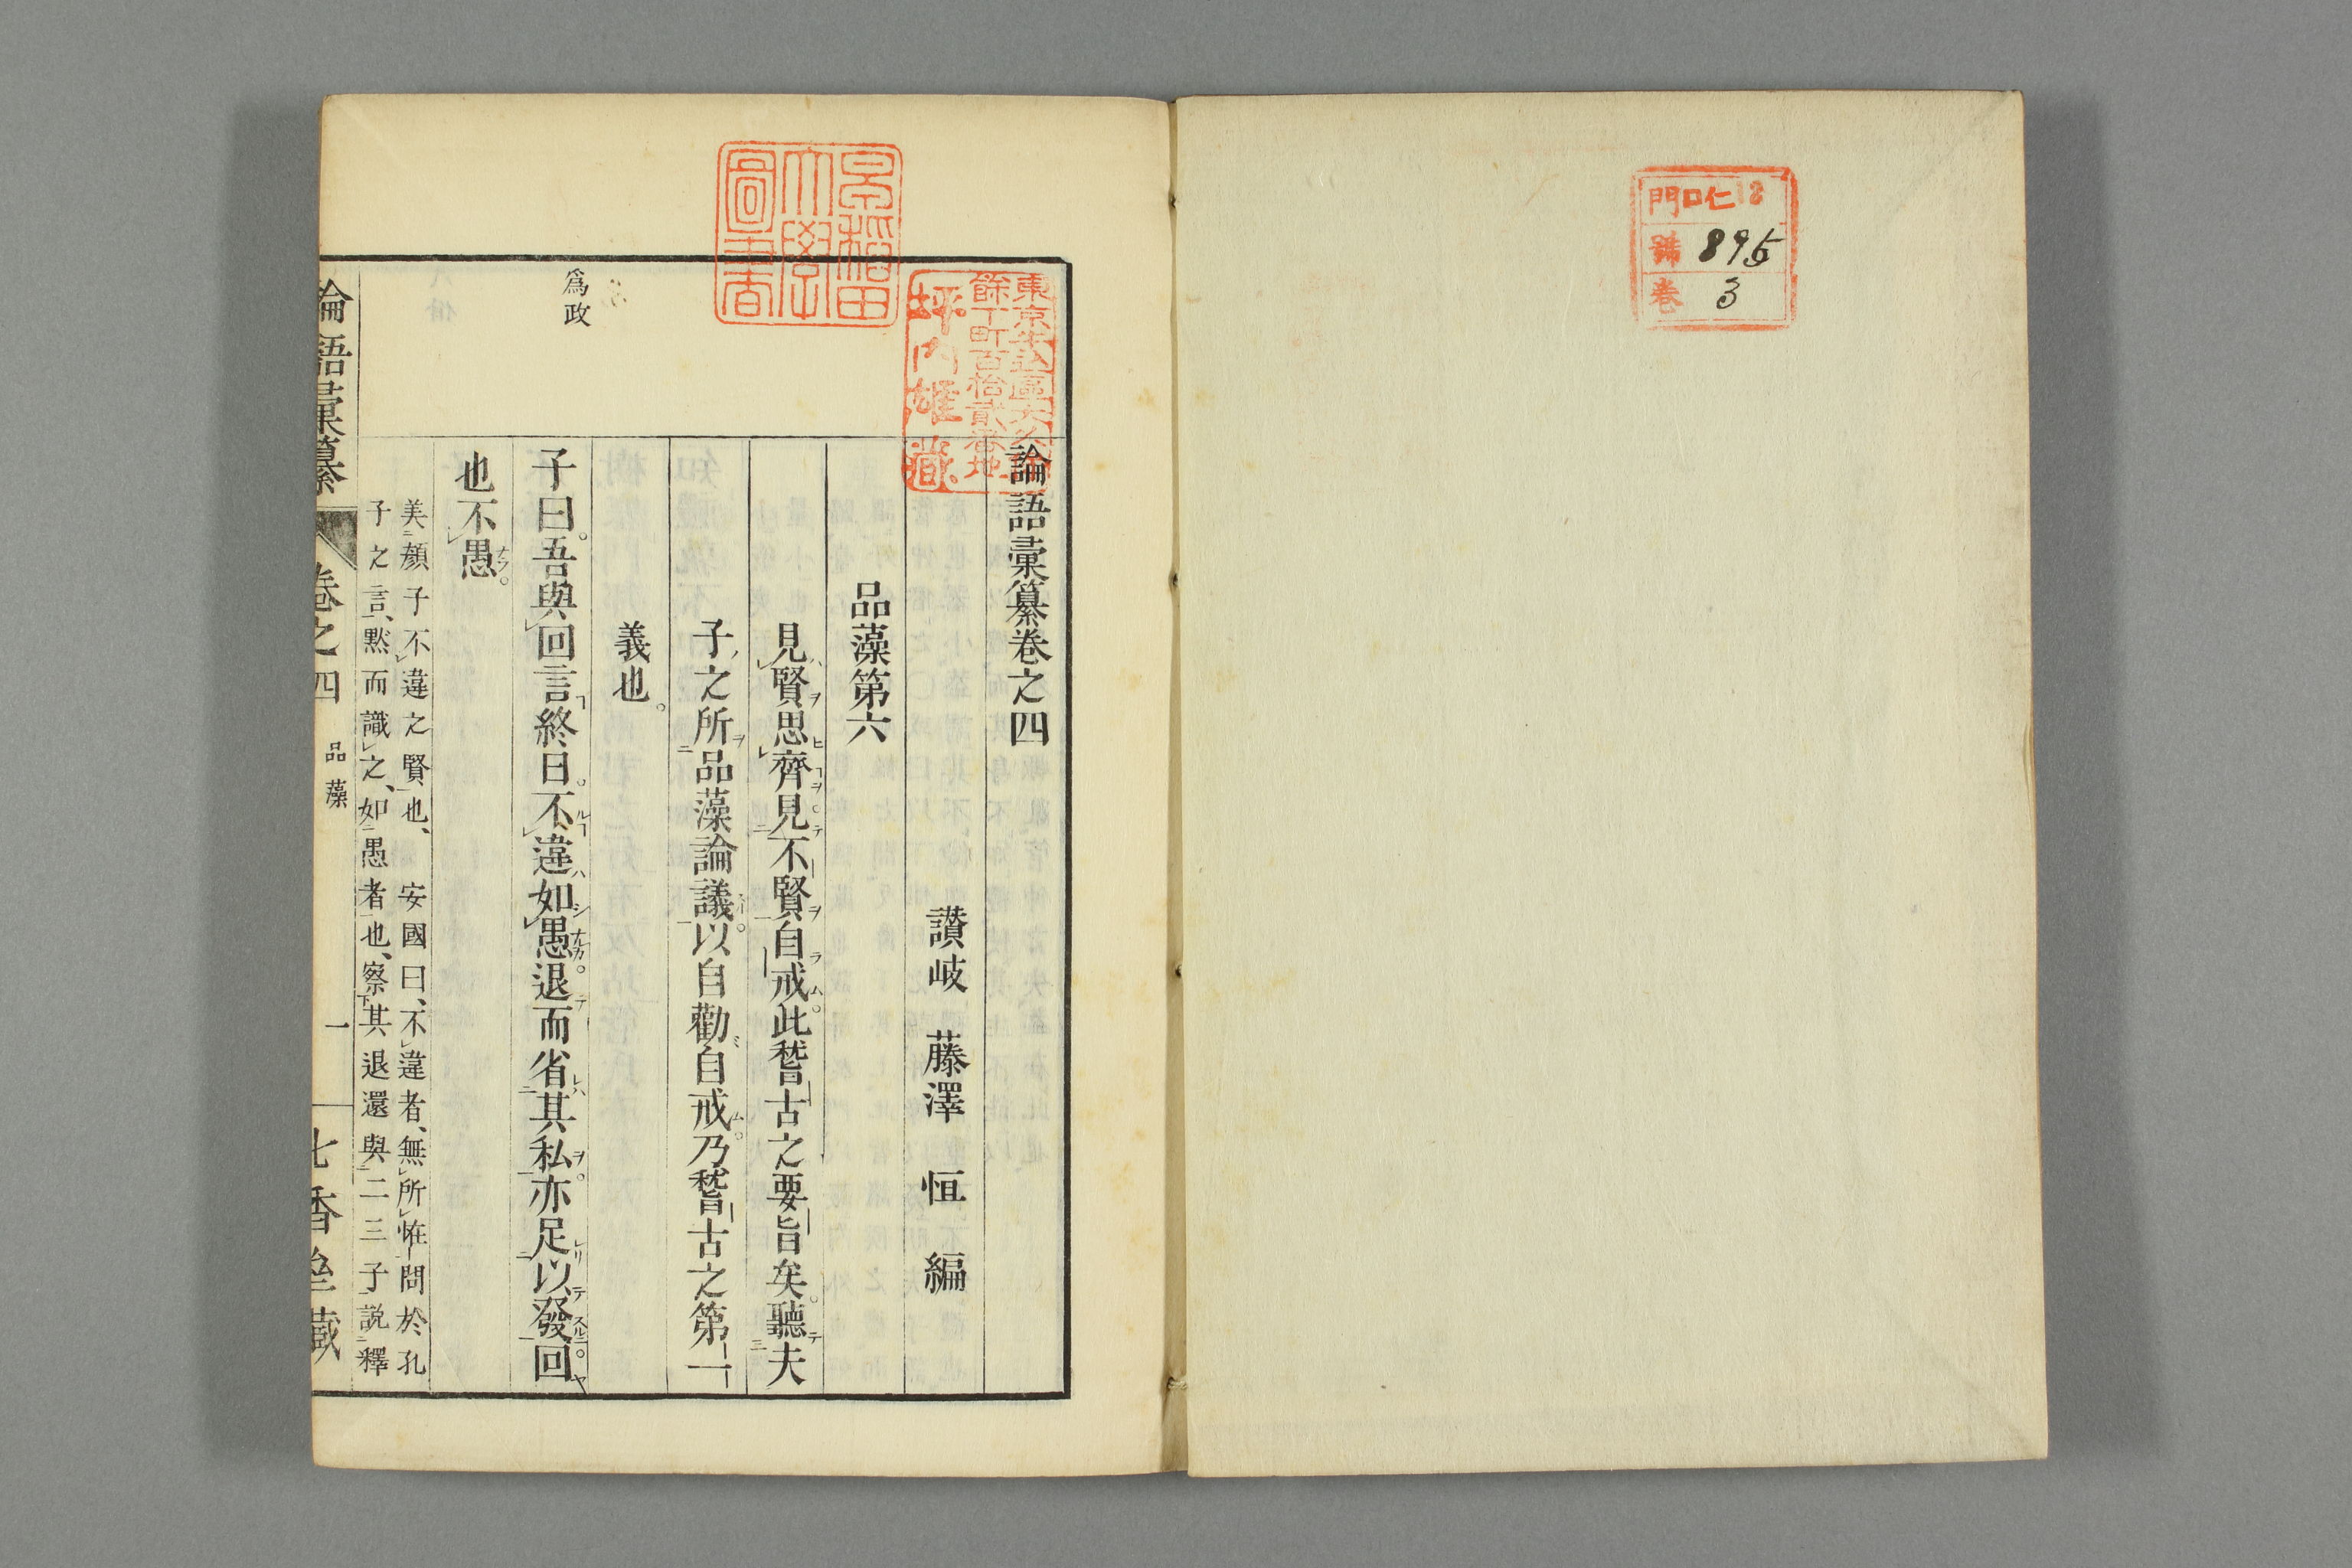 門 口仁 12
號 895
卷 3
早稻田
大學
圖書
東京牛込區大久保
餘丁町百拾貳番地
坪內雄藏
論語彙纂卷之四
讃岐 藤澤 恒 編
品藻第六
見賢思齊見不賢自戒此嵆古之要旨矣聽夫
子之所品藻論議以自勸自戒乃嵆古之第一
義也
爲政
子曰吾與回言終日不違如愚退而省其私亦足以發回
也不愚
美顏子不違之賢也、安國曰、不違者、無所恠問於孔
子之言、默而識之、如愚者也、察其退還與二三子説釋
論語彙纂 卷之四 品藻 一 七香坐藏